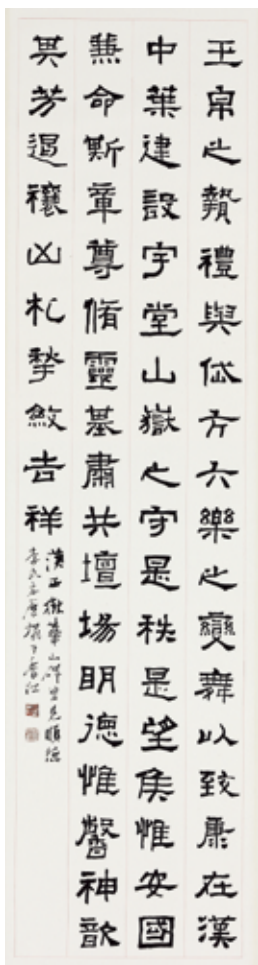 玉帛之贄禮與岱亢六樂之變舞以致康在漢
中葉建設宇堂山嶽之守是秩是望侯惟安國
兼命斯章尊脩靈基肅共壇場明德惟馨神歆
其芳遏禳凶札揫斂吉祥
漢西嶽華山碑順德
李氏